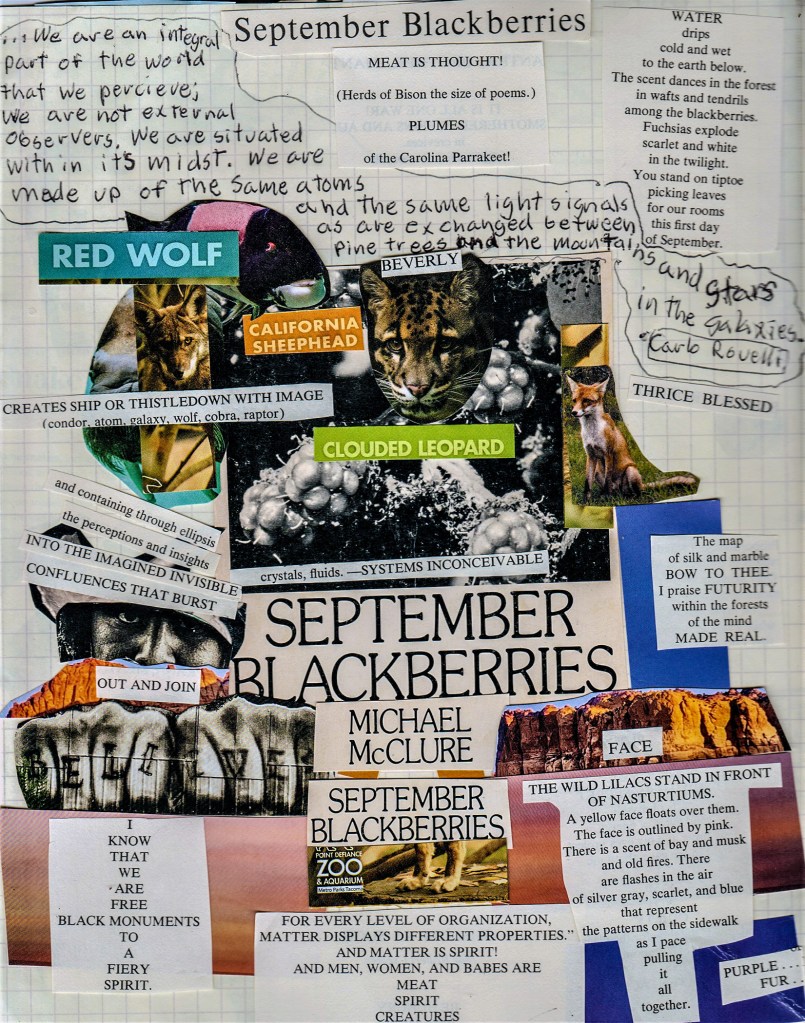 September Blackberries
...We are an integral
part of the world
that we percieve;
we are not external
observers. We are situated
within it's midst. We are
made up of the same atoms
and the same light signals
as are exchanged between
pine trees and the mountains
and stars
in the galaxies.
Carlo Rovelli
MEAT IS THOUGHT!
(Herds of Bison the size of poems.)
PLUMES
of the Carolina Parrakeet!
WATER
drips
cold and wet
to the earth below.
The scent dances in the forest
in wafts and tendrils
among the blackberries.
Fuchsias explode
scarlet and white
in the twilight.
You stand on tiptoe
picking leaves
for our rooms
this first day
of September.
RED WOLF
BEVERLY
CALIFORNIA
SHEEPHEAD
THRICE BLESSED
CREATES SHIP OR THISTLEDOWN WITH IMAGE
(condor, atom, galaxy, wolf, cobra, raptor)
CLOUDED LEOPARD
and containing through ellipsis
the perceptions and insights
INTO THE IMAGINED INVISIBLE
CONFLUENCES THAT BURST
crystals, fluids. —SYSTEMS INCONCEIVABLE
The map
of silk and marble
BOW TO THEE.
I praise FUTURITY
within the forests
of the mind
MADE REAL.
SEPTEMBER
BLACKBERRIES
OUT AND JOIN
MICHAEL
McCLURE
FACE
BELIEVE
SEPTEMBER
BLACKBERRIES
POINT DEFIANCE
ZOO
& AQUARIUM
Metro Parks Tacoma
THE WILD LILACS STAND IN FRONT
OF NASTURTIUMS.
A yellow face floats over them.
The face is outlined by pink.
There is a scent of bay and musk
and old fires. There
are flashes in the air
of silver gray, scarlet, and blue
that represent
the patterns on the sidewalk
as I pace
pulling
it
all
together.
I
KNOW
THAT
WE
ARE
FREE
BLACK MONUMENTS
TO
A
FIERY
SPIRIT.
FOR EVERY LEVEL OF ORGANIZATION,
MATTER DISPLAYS DIFFERENT PROPERTIES."
AND MATTER IS SPIRIT!
AND MEN, WOMEN, AND BABES ARE
MEAT
SPIRIT
CREATURES
PURPLE . . . .
FUR . . .